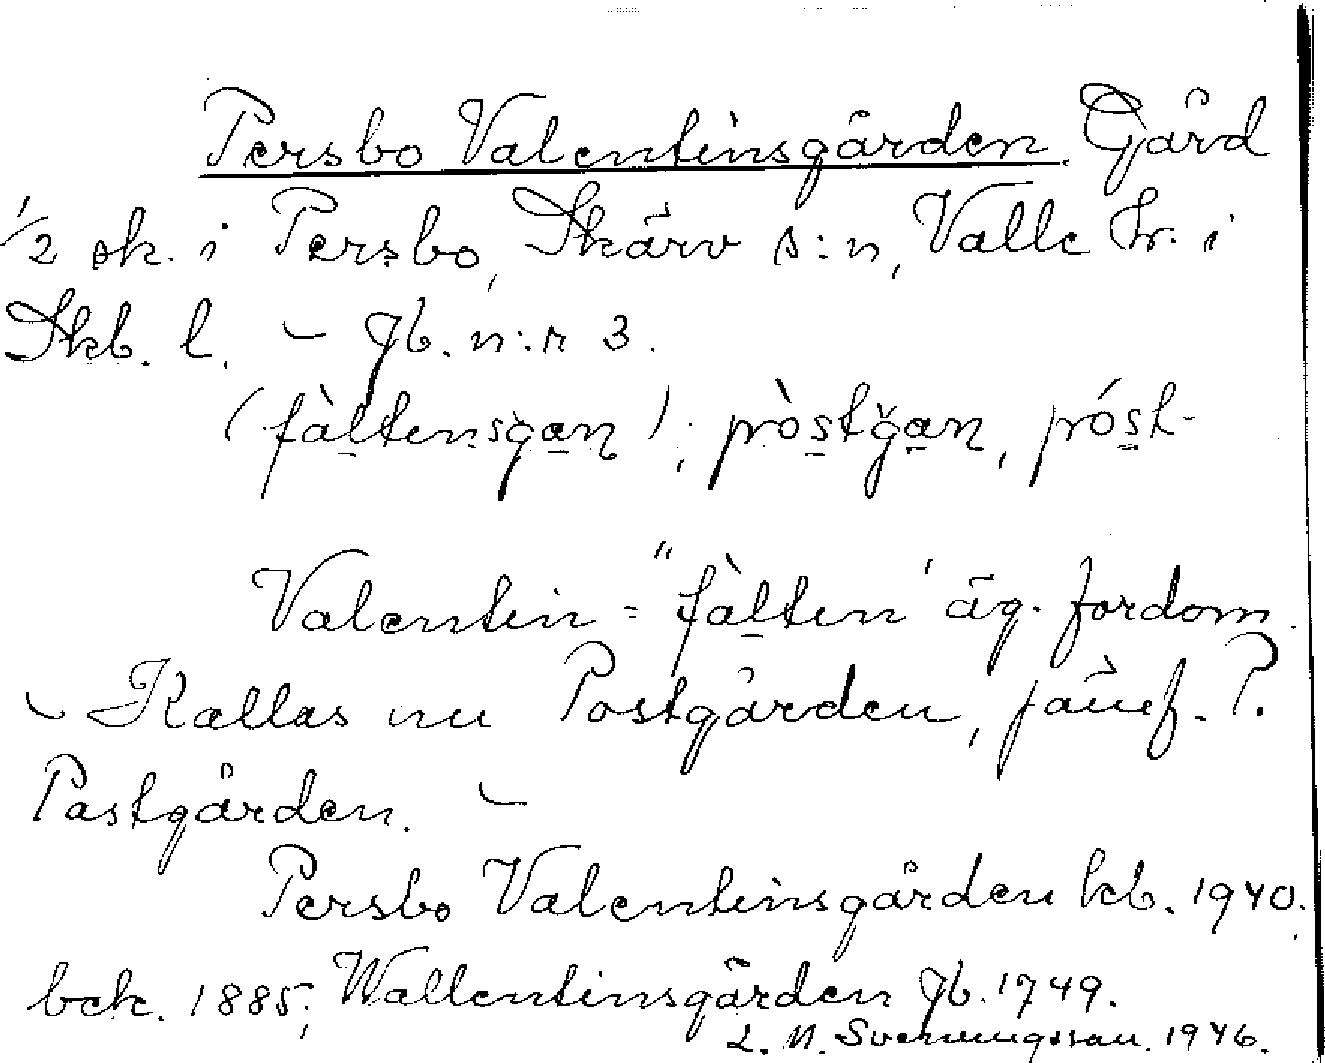 Persbo Valentinsgården. Gård
1/2 sk. i Persbo, Skärv s:n, Valle hr. i
Skb. l. – Jb. n:r 3.
(fàltensgan); pòstgan, póst-
Valentin = "fàlten" äg. fordom.
– Kallas nu Postgården, jämf. P.
Pastgården. –
Persbo Valentinsgården kb. 1940.
bek. 1885; Wallentinsgården Jb. 1749.
L. N. Svenungsson. 1946.